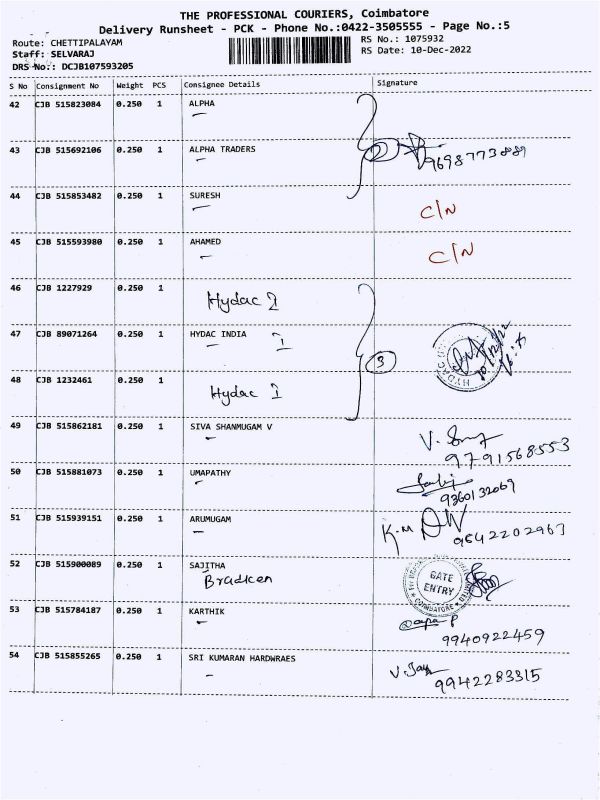 THE PROFESSIONAL COURIERS, Coimbatore
Delivery Runsheet - PCK - Phone No.:0422-3505555 - Page No.:5
Route: CHETTIPALAYAM
RS No.: 1075932
Staff: SELVARAJ
RS Date: 10-Dec-2022
DRS No.: DCJB107593205
S No Consignment No Weight PCS Consignee Details Signature
42 CJB 515823084 0.250 1 ALPHA
43 CJB 515692106 0.250 1 ALPHA TRADERS 2 9698773889
44 CJB 515853482 0.250 1 SURESH C/N
45 CJB 515593980 0.250 1 AHAMED C/N
46 CJB 1227929 0.250 1 Hydac I
47 CJB 89071264 0.250 1 HYDAC INDIA I 3 HYDAC 10/12/22
48 CJB 1232461 0.250 1 Hydac I
49 CJB 515862181 0.250 1 SIVA SHANMUGAM V V. 9791568553
50 CJB 515881073 0.250 1 UMAPATHY 9360132069
51 CJB 515939151 0.250 1 ARUMUGAM K.M 9542202963
52 CJB 515900089 0.250 1 SAJITHA GATE ENTRY COIMBATORE
Bradken
53 CJB 515784187 0.250 1 KARTHIK 9940922459
54 CJB 515855265 0.250 1 SRI KUMARAN HARDWRAES V. 9942283315